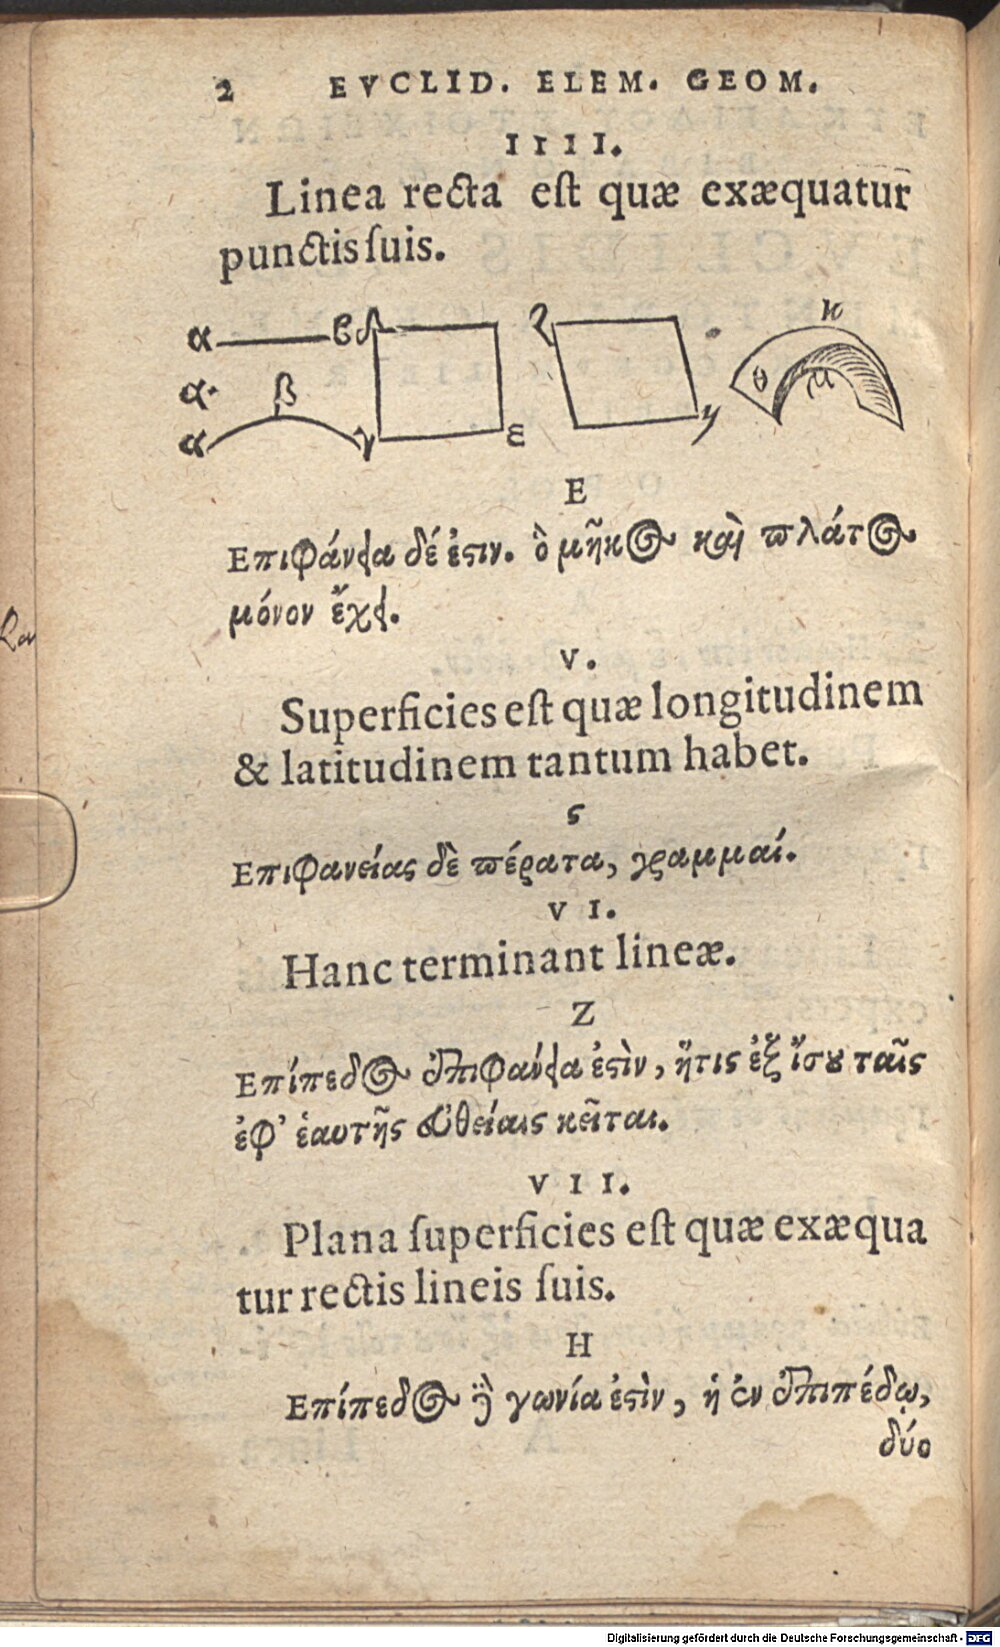 2 EVCLID. ELEM. GEOM.
IIII.
Linea recta est quæ exæquatur
punctis suis.
α β δ ζ κ
α β θ μ
α γ ε η
E
Επιφάνεια δέ ἐστιν. ὃ μῆκος καὶ πλάτος
μόνον ἔχει.
V.
Superficies est quæ longitudinem
& latitudinem tantum habet.
ϛ
Επιφανείας δὲ πέρατα, γραμμαί.
VI.
Hanc terminant lineæ.
Z
Επίπεδος ἐπιφάνεια ἐστὶν, ἥτις ἐξ ἴσου ταῖς
ἐφ' ἑαυτῆς εὐθείαις κεῖται.
VII.
Plana superficies est quæ exæqua
tur rectis lineis suis.
H
Επίπεδος δὲ γωνία ἐστὶν, ἡ ἐν ἐπιπέδῳ,
δύο
Digitalisierung gefördert durch die Deutsche Forschungsgemeinschaft - DFG